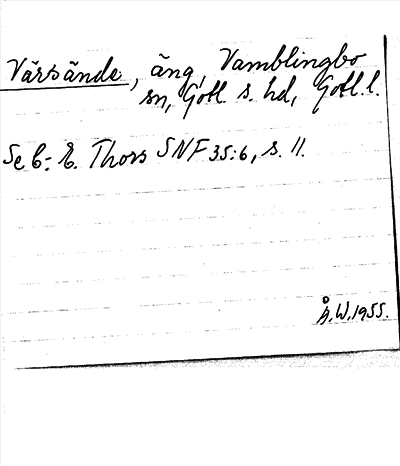 Värsände, äng, Vamblingbo
sn, Gotl. s. hd, Gotl. l.
Se C.-E. Thors SNF 35:6, s. 11.
Å.W. 1955.